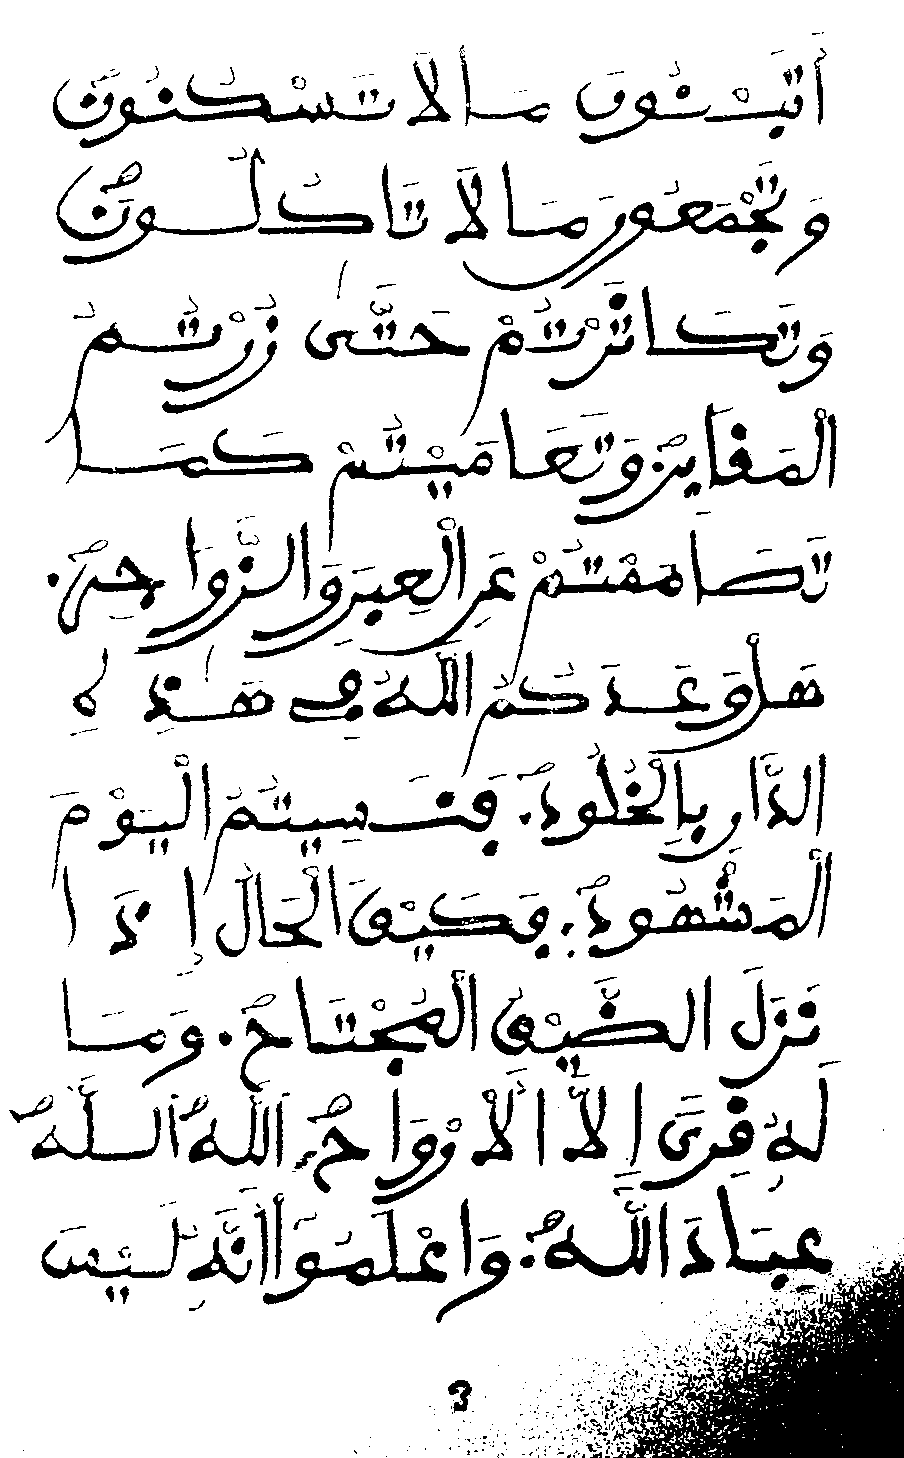 أَتَبْنُونَ مَا لَا تَسْكُنُونَ
وَتَجْمَعُونَ مَا لَا تَاكُلُونَ
وَتَكَاثَرْتُمْ حَتَّى زُرْتُمُ
الْمَقَابِرَ وَتَعَامَيْتُمْ كَمَا
تَصَامَمْتُمْ عَنِ الْعِبَرِ وَالزَّوَاجِرِ.
هَلْ وَعَدَكُمُ اللَّهُ فِى هَذِهِ
الدَّارِ بِالْخُلُودِ. فَنَسِيتُمُ الْيَوْمَ
الْمَشْهُودَ. فَكَيْفَ الْحَالُ إِذَا
نَزَلَ الضَّيْفُ الْمُجْتَاحُ. وَمَا
لَهُ قِرًى إِلَّا الَارْوَاحُ اللَّهُ اللَّهُ
عِبَادَ اللَّهِ. وَاعْلَمُوا أَنَّهُ لَيْسَ
3